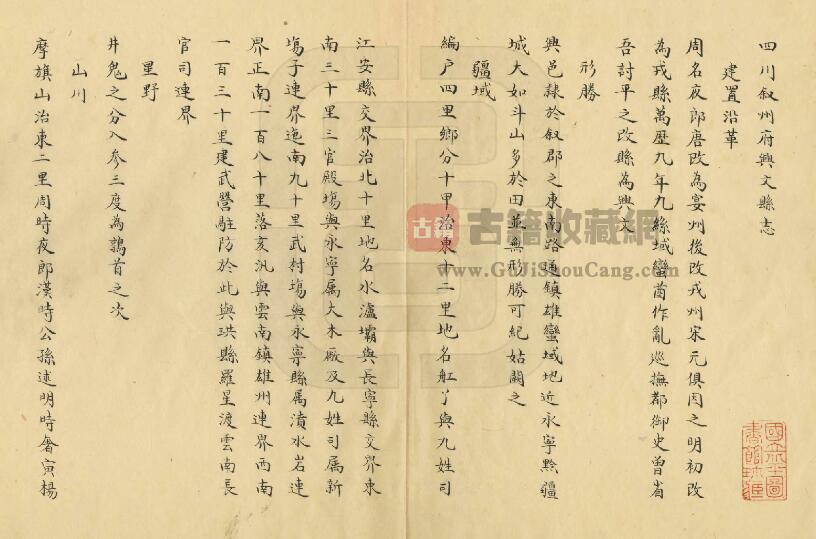 四川叙州府興文縣志
建置沿革
周名夜郎唐改為宴州後改戎州宋元俱因之明初改
為戎縣萬歷九年九絲城蠻酋作亂巡撫都御史曾省
吾討平之改縣為興文
形勝
興邑隸於叙郡之東南路通鎮雄蠻域地近永寧黔疆
城大如斗山多於田並無形勝可紀姑闕之
疆域
編户四里鄉分十甲治東十二里地名舡丫與九姓司
江安縣交界治北十里地名水瀘壩與長寧縣交界東
南三十里三官殿塲與永寧属大木厰及九姓司属新
塲子連界迤南九十里武村塲與永寧縣属瀆水岩連
界正南一百八十里落亥汛與雲南鎮雄州連界西南
一百三十里建武營駐防於此與珙縣羅星渡雲南長
官司連界
星野
井鬼之分入參三度為鶉首之次
山川
摩旗山治東二里周時夜郎漢時公孫述明時奢寅楊
古籍
古籍收藏網
www.GuJiShouCang.com